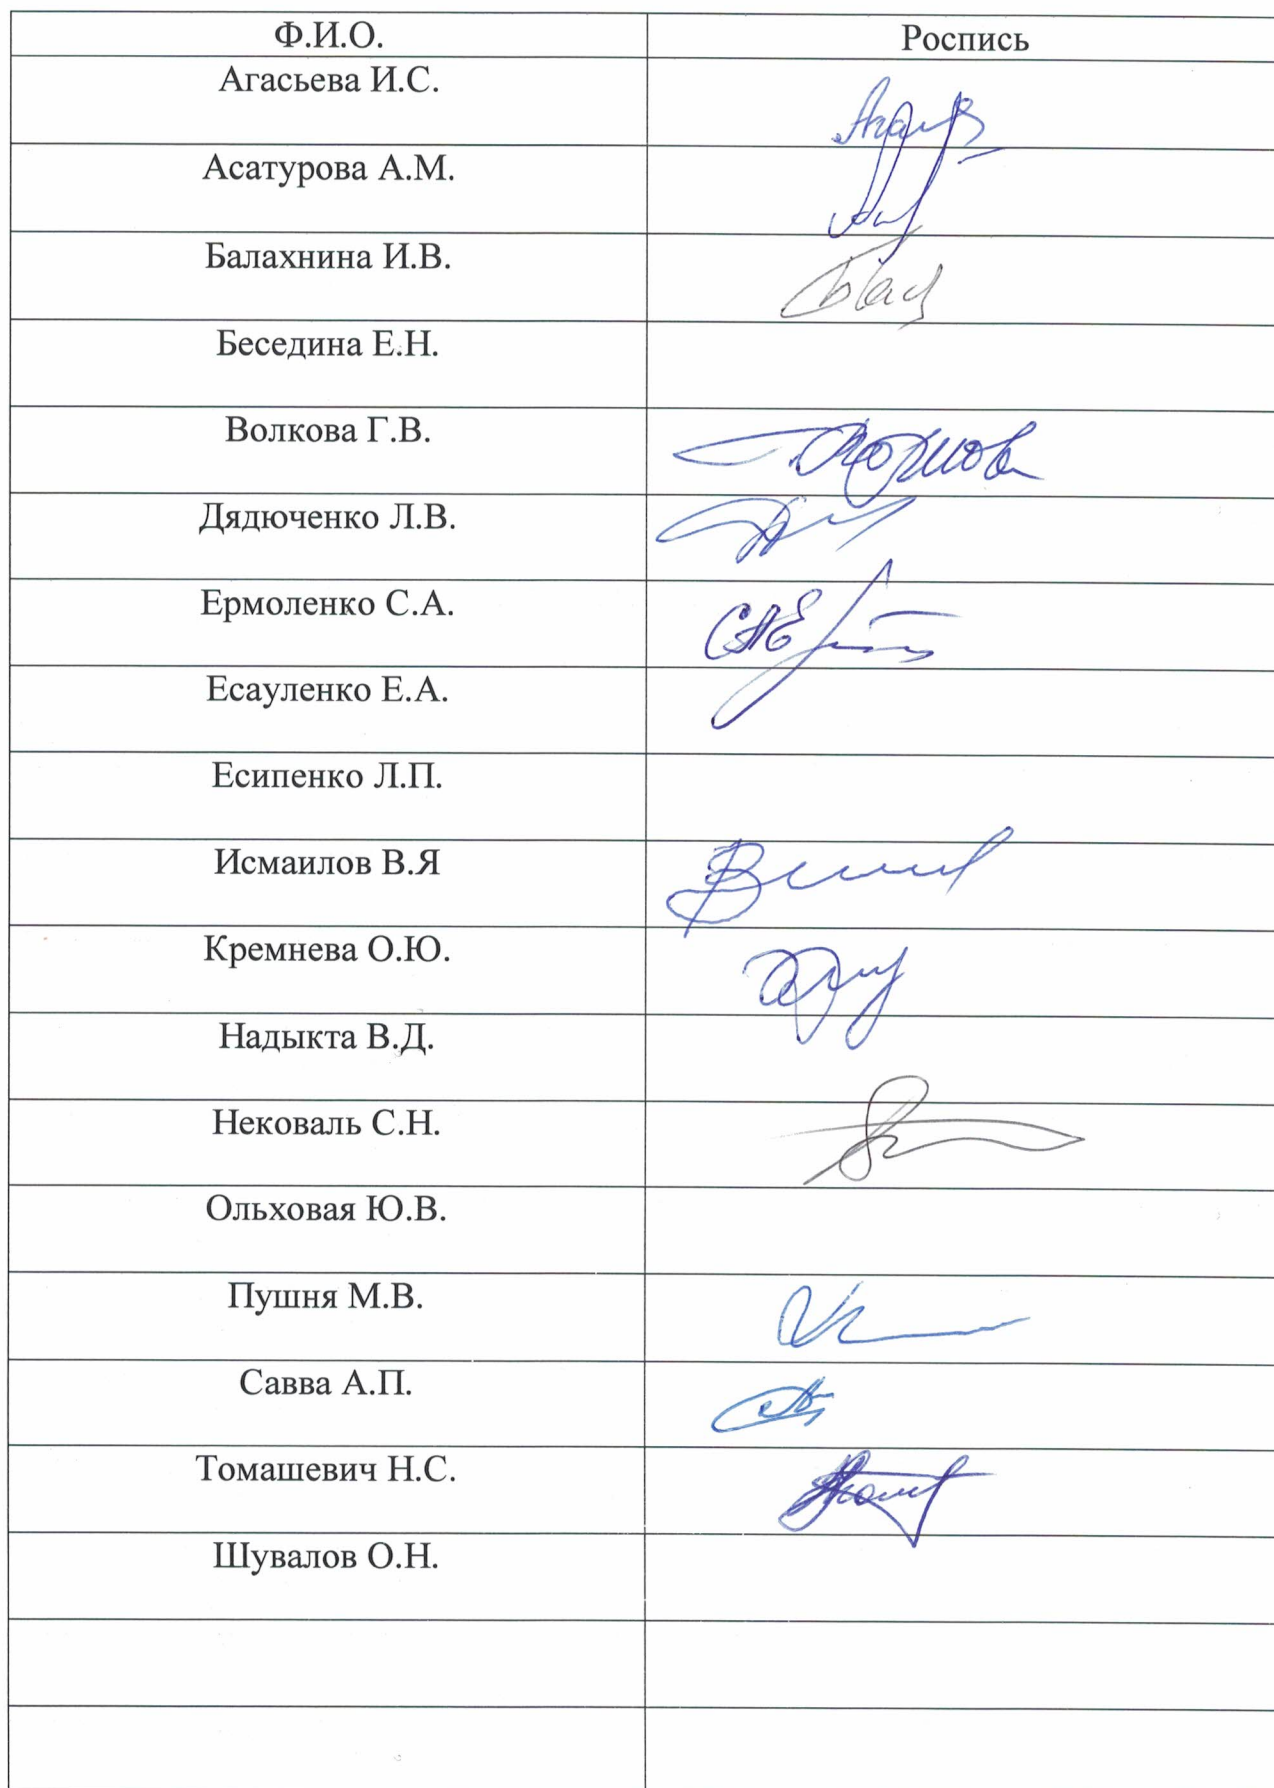 Ф.И.О. Роспись
Агасьева И.С.
Асатурова А.М.
Балахнина И.В.
Беседина Е.Н.
Волкова Г.В.
Дядюченко Л.В.
Ермоленко С.А.
Есауленко Е.А.
Есипенко Л.П.
Исмаилов В.Я
Кремнева О.Ю.
Надыкта В.Д.
Нековаль С.Н.
Ольховая Ю.В.
Пушня М.В.
Савва А.П.
Томашевич Н.С.
Шувалов О.Н.